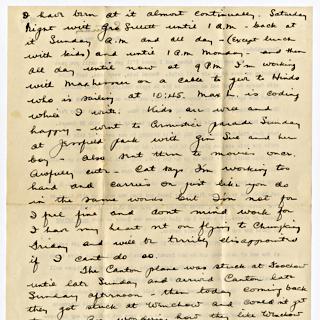 I have been at it almost continually. Saturday
night with Geo Street until 1 a.m. - back at
it Sunday a.m. and all day - (except lunch
with kids) and until 1 a.m. Monday - and then
all day until now at 9 PM I'm working
with on a cable to give to Hinds
who is sailing at 10:45. is coding
while I write. Kids are well and
happy - went to Armistice parade Sunday
at park with and her
boy - also sent them to movies once.
Awfully cute - Cat says I'm working too
hard and carries on just like you do
in the same words but I'm not for
I feel fine and dont mind work for
I have my heart set on flying to Chungking
Friday and will be terribly disappointed
if I cant do so.
The Canton plane was stuck at Foochow
until late Sunday and arrived Canton late
Sunday afternoon - then today coming back
they got stuck at Wenchow and could not get
wondering how they like Wenchow